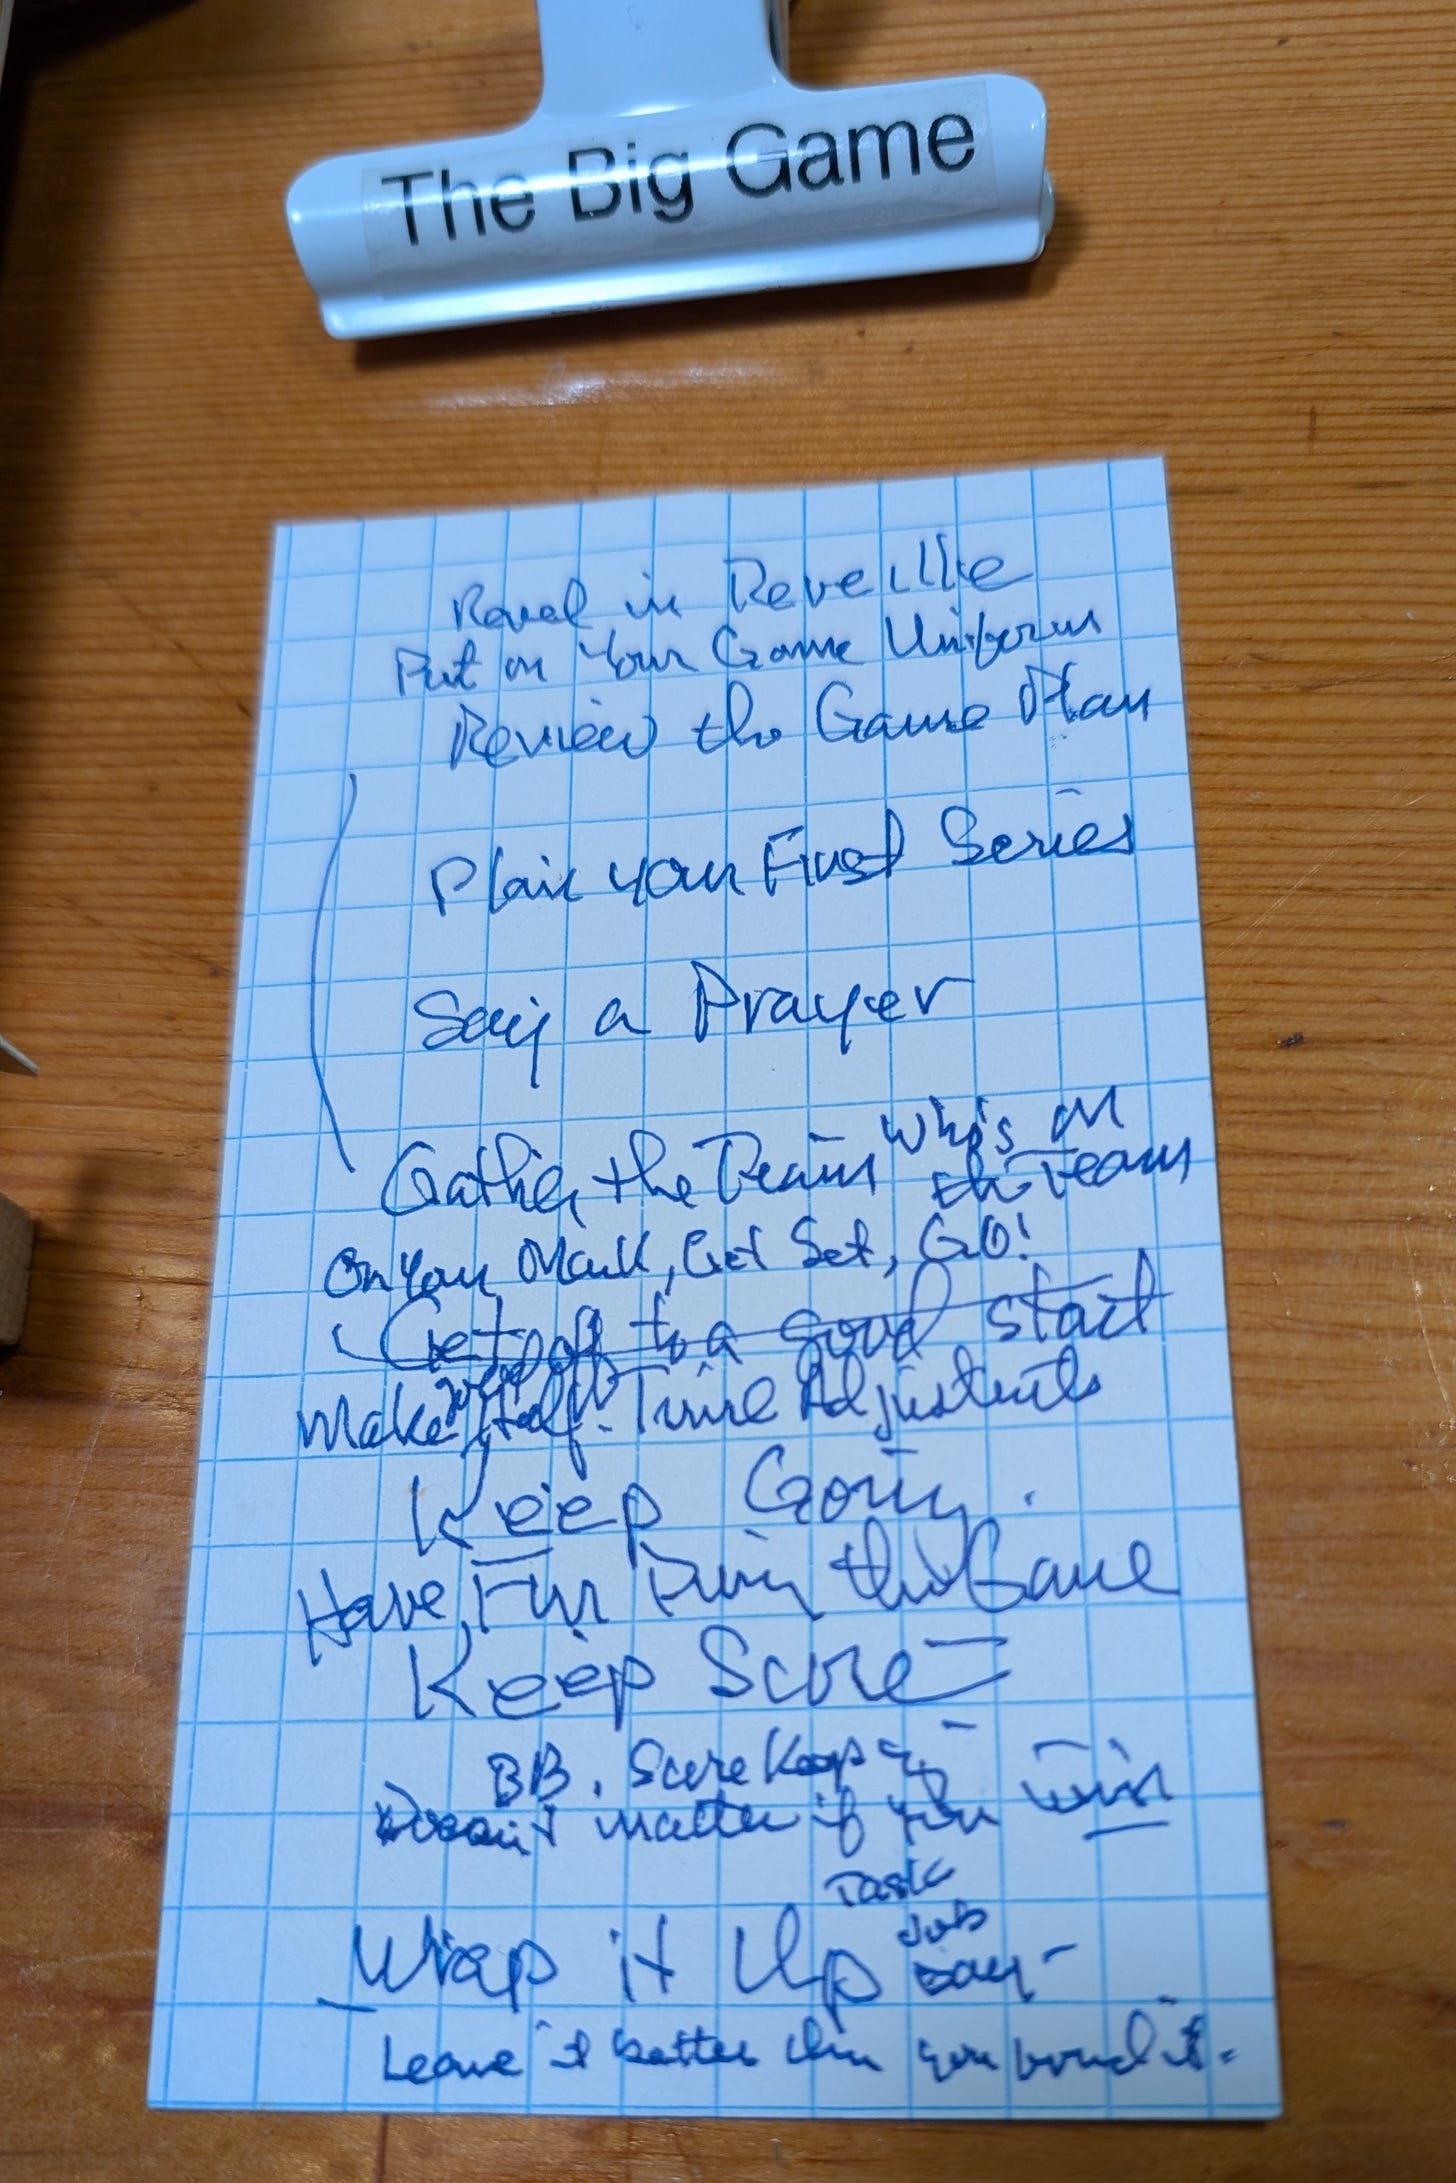 The Big Game
Revel in Reveille
Put on Your Game Uniform
Review the Game Plan
Plan your First Series
Say a Prayer
Gather the Team Who's on
the Team
On Your Mark, Get Set, GO!
Get off to a good start
Make Half-Time Adjustments
Keep Going.
Have Fun During the Game
Keep Score
BB. Score Keep
Doesn't matter if you win
Task
Job
Wrap it Up Day
Leave it better than you found it.